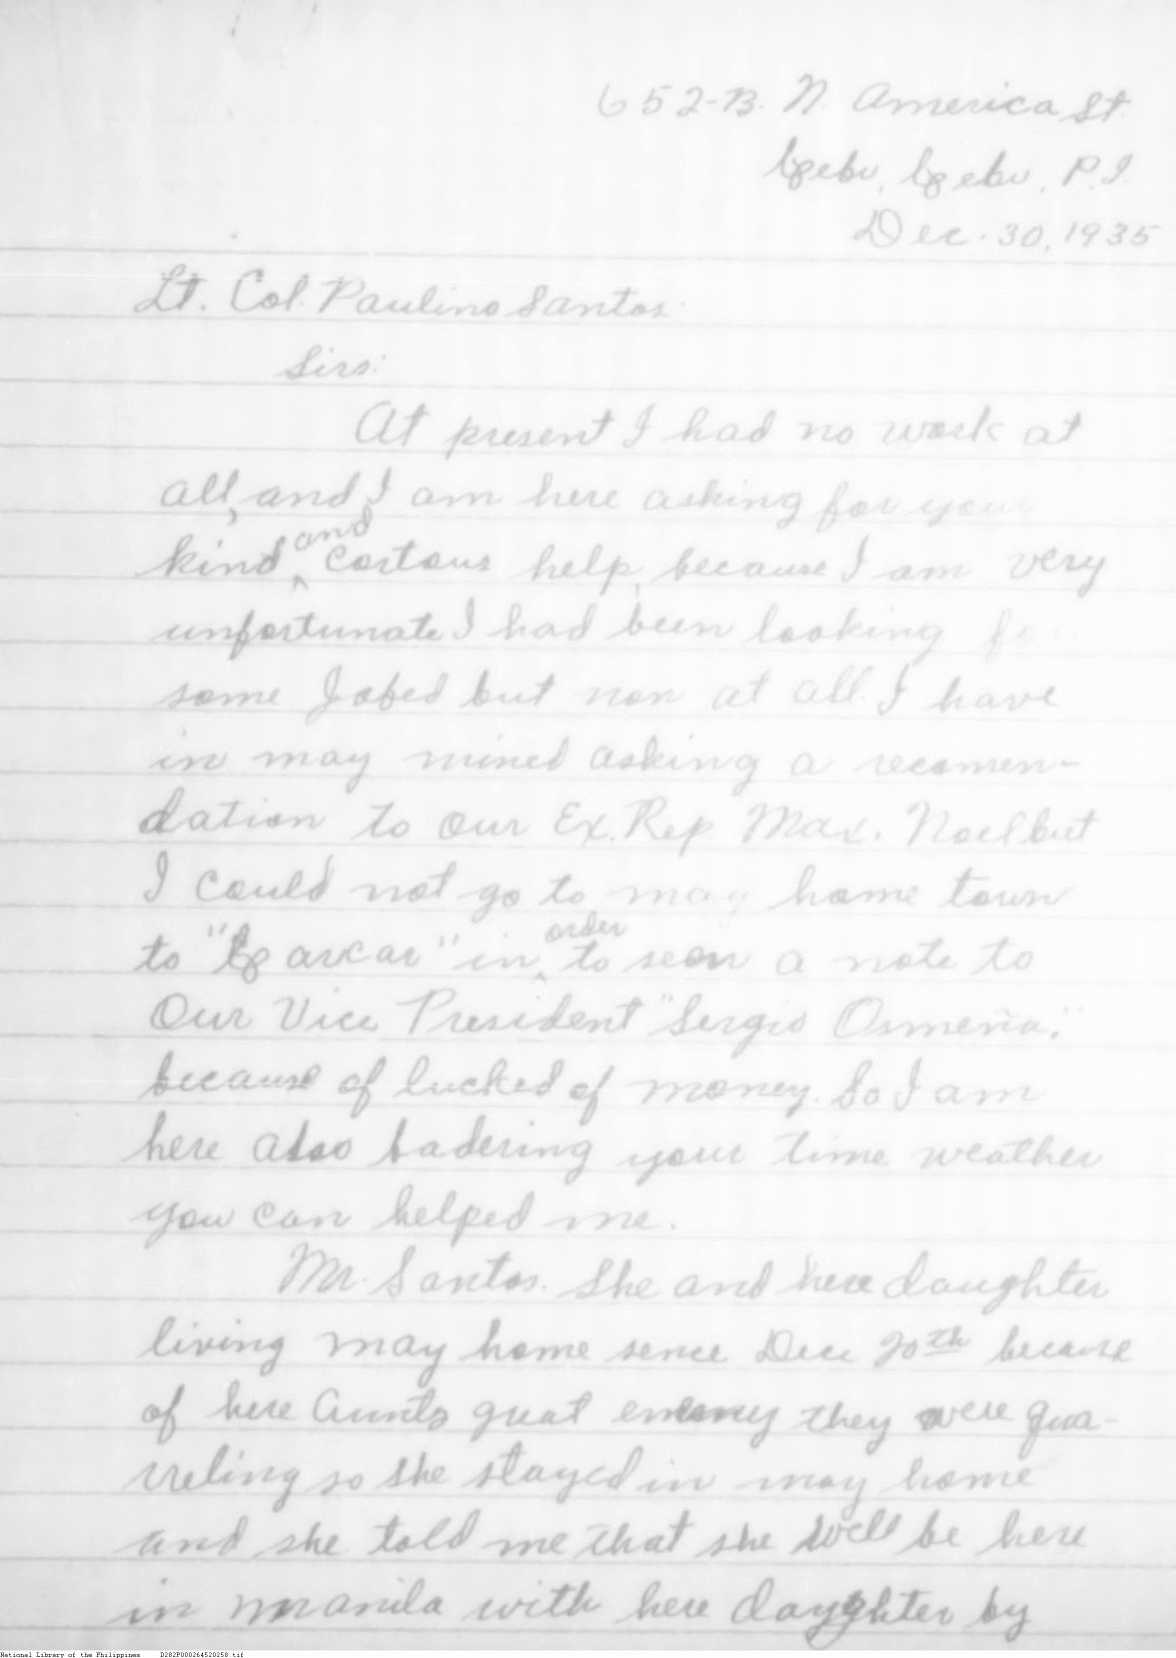 652-B. N. America St.
Cebu, Cebu, P.I.
Dec. 30, 1935
Lt. Col. Paulino Santos.
Sirs:
At present I had no work at
all, and I am here asking for your
kind and cortous help, because I am very
unfortunate I had been looking fo
some Jobed but non at all. I have
in may mined asking a recomen-
dation to our Ex. Rep Max. Noel but
I could not go to may home town
to "Carcar" in order to seen a note to
Our Vice President "Sergio Osmeña."
because of lucked of money. So I am
here also badering your time weather
you can helped me.
Mr. Santos. She and here daughter
living may home sence Dec 20th because
of here Aunts great enemy they were qua-
rreling so she stayed in may home
and she told me that she will be here
in manila with here daughter by
National Library of the Philippines D282P000264520258.tif